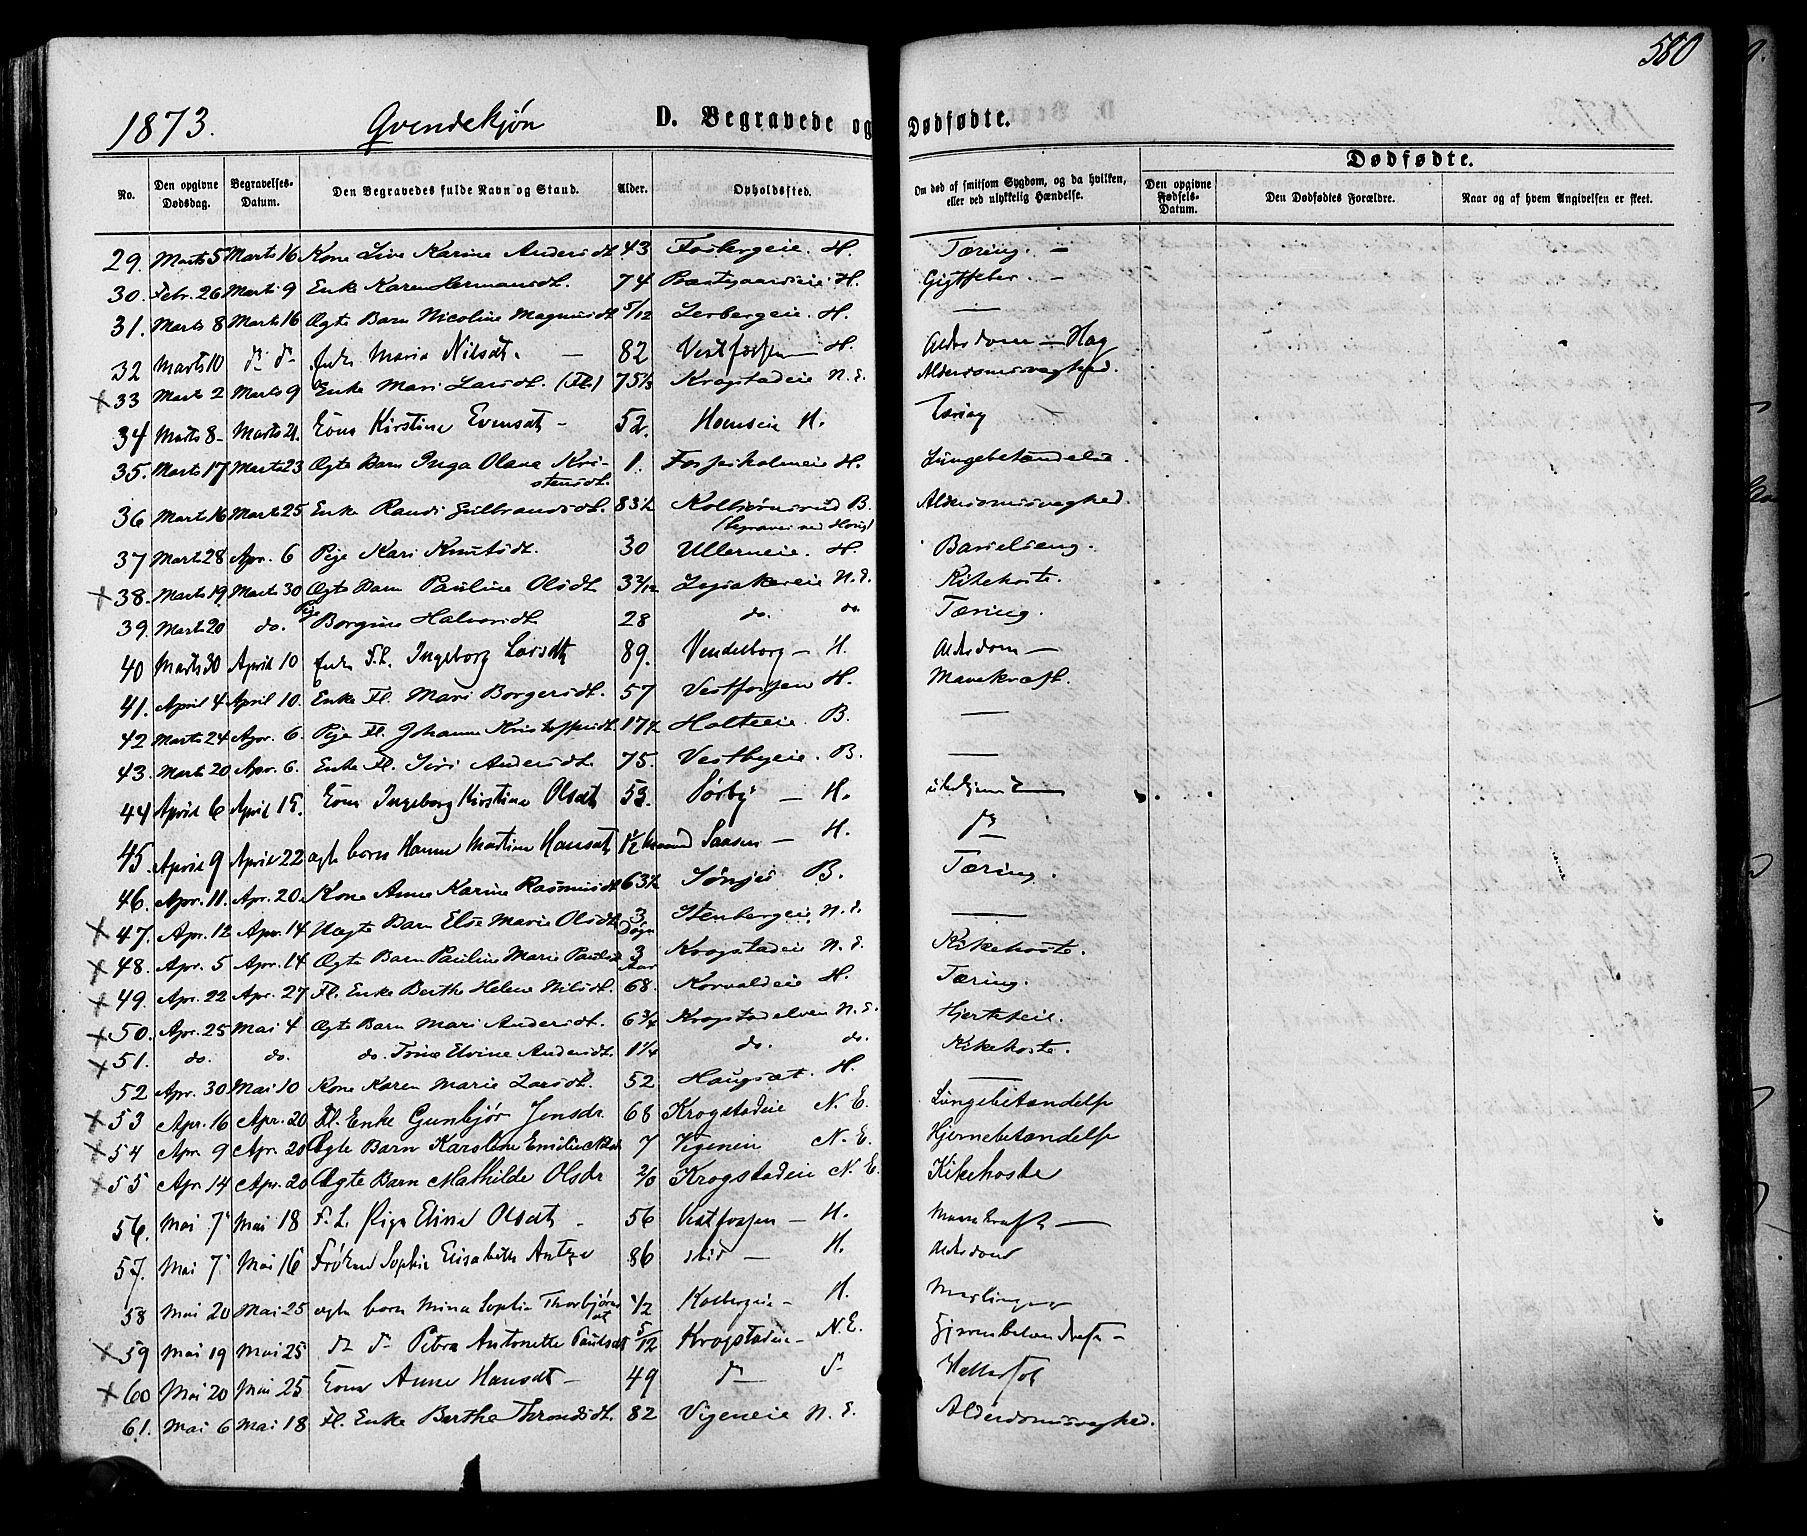 580
1873. Qvindekjøn D. Begravede og Dødfødte.
Dødfødte.
No. Den opgivne Dødsdag. Begravelses-Datum. Den Begravedes fulde Navn og Stand. Alder. Opholdssted. Om død af smitsom Sygdom, og da hvilken, eller ved ulykkelig Hændelse. Den opgivne Fødsels-Datum. Den Dødfødtes Forældre. Naar og af hvem Angivelsen er skeet.
29. Marts 5 Marts 16 Kone Live Karine Andersdt. 43 Fosbergeie. H. Tæring. —
30. Febr. 26 Marts 9 Enke Karen Hermansdt. 74 H. Gigtfeber. —
31. Marts 8 Marts 16 Ægte Barn Nicoline Magnusdt. 5/12 Lerbergeie. H. —
32 Marts 10 do do Enke Maria Nilsdt. — 82 Vestfossen — H. Alderdom — Hag
33 Marts 2 Marts 9 Enke Mari Larsdt. (Fl.) 75 1/3 Krogstadeie N. E. Alderdomssvaghed.
34 Marts 8 - Marts 21. Kone Kirstine Evensdt — 52. Hoenseie H. Tæring
35. Marts 17 Marts 23 Ægte Barn Inga Olava Kri-
stensdt. 1. Fossesholmeie H. Lungebetændelse.
36 Marts 16 Marts 25 Enke Randi Gulbrandsdt. 83 1/2 Kolbjørnsrud B. Alderdomssvaghed.
37 Marts 28 Apr. 6 Pige Kari Knutsdt. 30 Ullerneie. H. Barselseng.
38. Marts 19. Marts 30 Ægte Barn Pauline Olsdt. 3 3/12 N. E. Kikehoste.
39. Marts 20 do. Pige Borgine Halvorsdt. 28 do. do. Tæring.
40 Marts 30 April 10 Enke F.L. Ingeborg Larsdt 89. Vendelborg — H. Alderdom —
41. April 4 April 10. Enke Fl. Mari Borgersdt. 57 Vestfossen H. Mavekræft.
42 Marts 24 Apr. 6. Pige Fl. Johanne Kristoffersdt. 17 1/2 Holteeie. B. —
43. Marts 20 Apr. 6. Enke Fl. Siri Andersdt. 75. Vestbyeie. B. —
44 April 6 April 15. Kone Ingeborg Kirstine Olsdt 53. Sørby — H. ubekjent —
45. April 9 April 22 ægte barn Hanne Martine Hansdt 1 1/2 Maaned Saasen — H. do
46. Apr. 11. Apr. 20. Kone Anne Karine Rasmusdt. 63 1/2 B. Tæring.
47. Apr. 12 Apr. 14 Uægte Barn Else Marie Olsdt. 3 Døgn Stenbergeie, N. E. —
48. Apr. 5 Apr. 14 Ægte Barn Pauline Marie Paulsdt 3 Aar Krogstadeie N. E. Kikehoste.
49. Apr. 22 Apr. 27 Fl. Enke Berthe Helene Nilsdt. 68. Korvaldeie H. Tæring.
50. Apr. 25 Mai 4 Ægte Barn Mari Andersdt. 6 3/4 Krogstadelven N. E. Hjertefeil.
51. do. do. do. Trine Elvine Andersdt. 1 1/4 do. do. Kikehoste.
52 Apr. 30 Mai 10 Kone Karen Marie Larsdt. 52 Haugsæt H. —
53 Apr. 16 Apr. 20 Fl. Enke Gunbjør Jensdr 68 Krogstadeie N. E. Lungebetændelse
54 Apr. 9 Apr. 20 Ægte Barn Karoline Emilie 7 Vegeneie N. E. Hjernebetændelse
55 Apr. 14 Apr. 20 Ægte Barn Mathilde Olsdr Krogstadeie N. E. Kikehoste
56. Mai 7 Mai 18 F. L. Pige Eline Olsdt — 56 Vestfossen — H. Mavekræft —
57. Mai 7 Mai 16 Frøken Sophie Elisabeth 86 — H. Alderdom
58 Mai 20 Mai 25 ægte barn Mina Sophie Thorbjørnsdt 1/2 Kolbergeie — H. Meslinger
59 Mai 19 Mai 25 do do Petra Antonette Paulsdt 5/12 Krogstadeie — N. E. —
60 Mai 20 Mai 25 Kone Anne Hansdt — 49 do do
61. Mai 6 Mai 18 Fl. Enke Berthe Throndsdt. 82 Vigeneie N. E. Alderdomssvaghed.